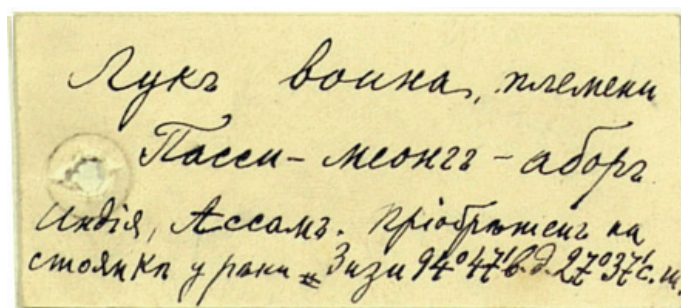 Лукъ воина, племени
Пасси-меонгъ-аборъ
Индія, Ассамъ. Пріобрѣтенъ на
стоянкѣ у рѣки „Зизи 94°47' в.д. 27°37' с.ш.